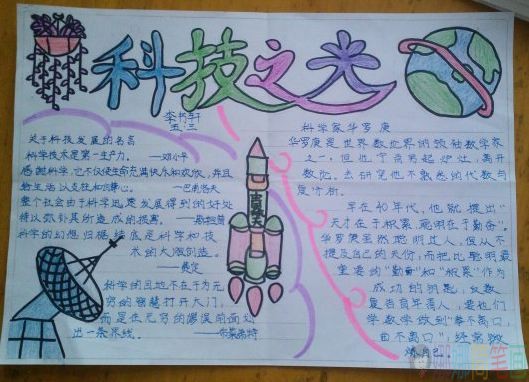 科技之光
李书轩
五.三
关于科技发展的名言
科学技术是第一生产力。——邓小平
感谢科学,它不仅使生命充满快乐和欢欣,并且
给生活以支柱和自尊心。——巴甫洛夫
整个社会由于科学迅速发展得到的好处
科学的幻想归根结底是科学和技
术的大胆创造。
科学的目地不在于为无
穷的智慧打开大门,
而是在无穷的谬误前面划
出一条界线。——布莱希特
科学家华罗庚
华罗庚是世界数论界的领袖数学家
之一,但他
数论,去研究他不熟悉的代数与
复分析。
早在40年代,他就提出"
天才在于积累,聪明在于勤奋"。
华罗庚虽然聪明过人,但从不
提及自己的天份,而把比聪明最
重要的"勤奋"和"积累"作为
成功的钥匙,反教
复告青年人,要他们
学数学做到"拳不离口,
曲不离口",经常锻
炼自己。